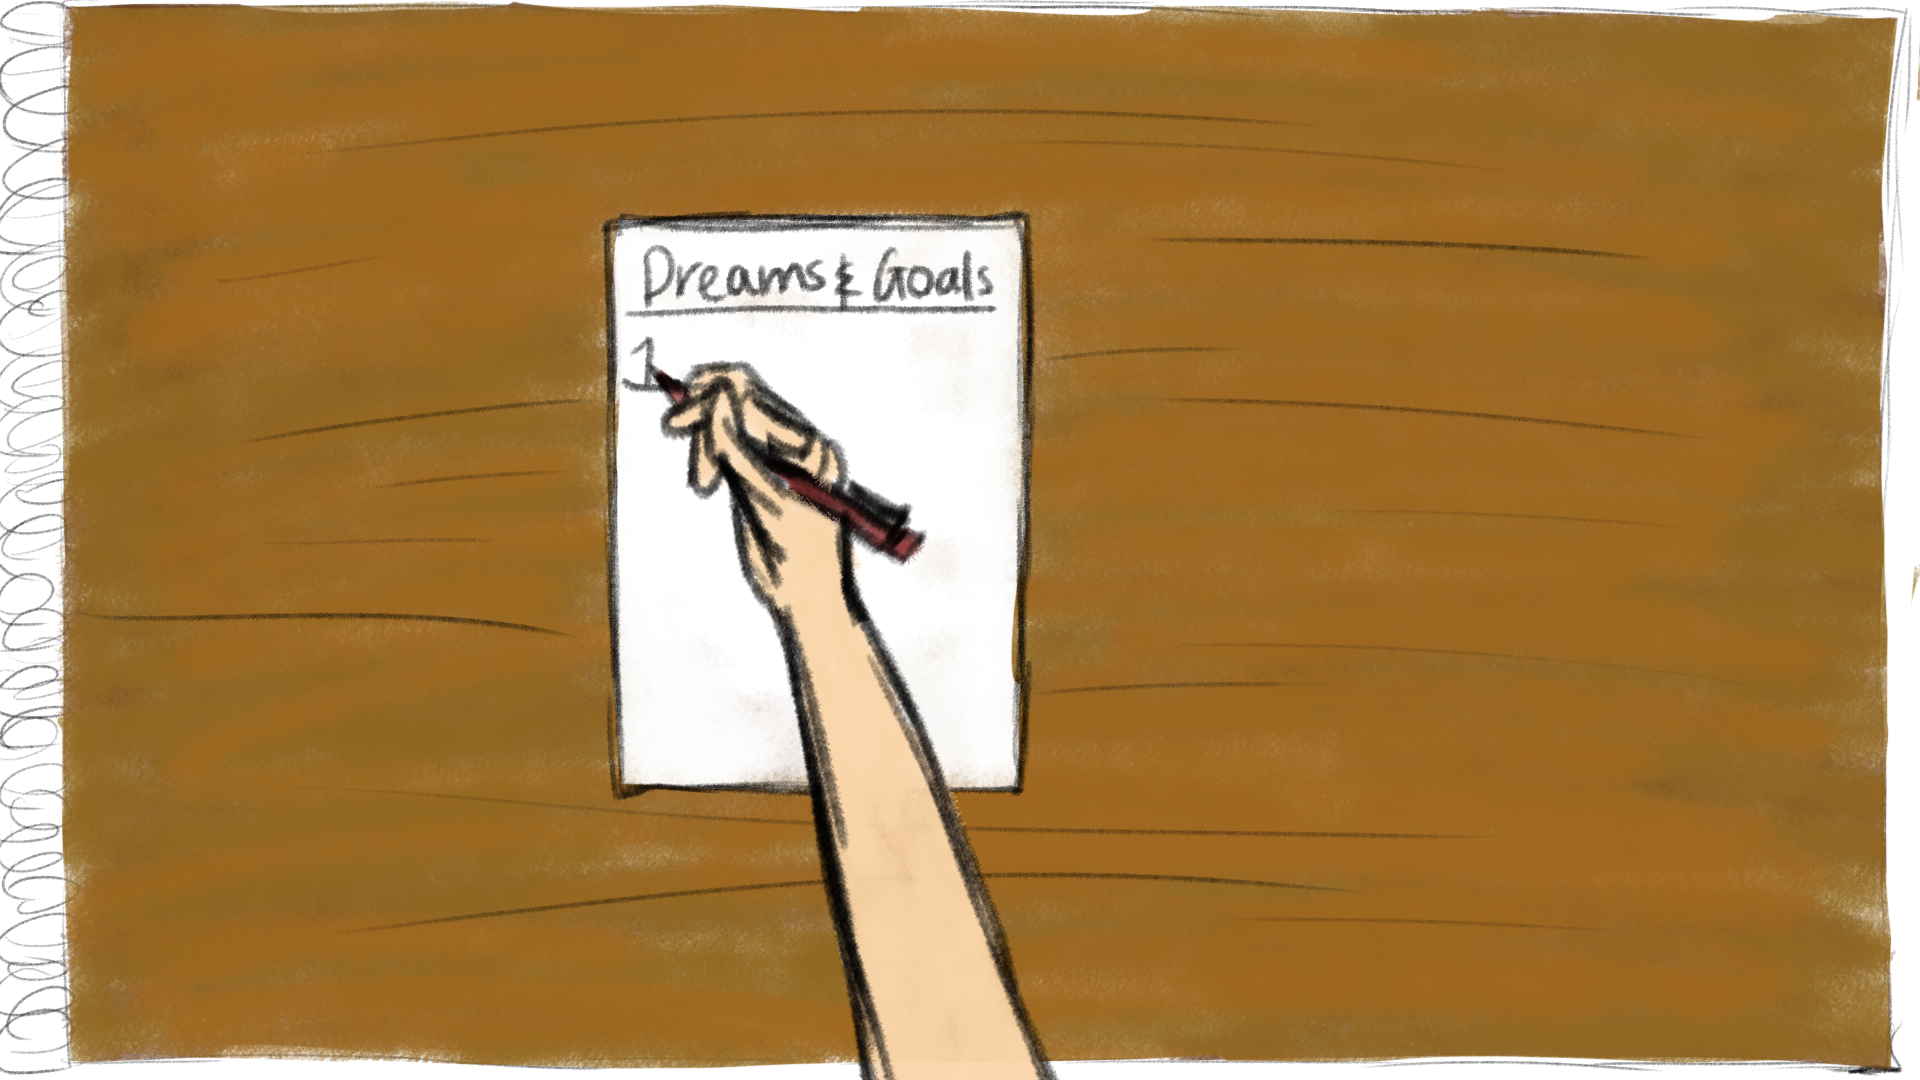 Dreams & Goals
1